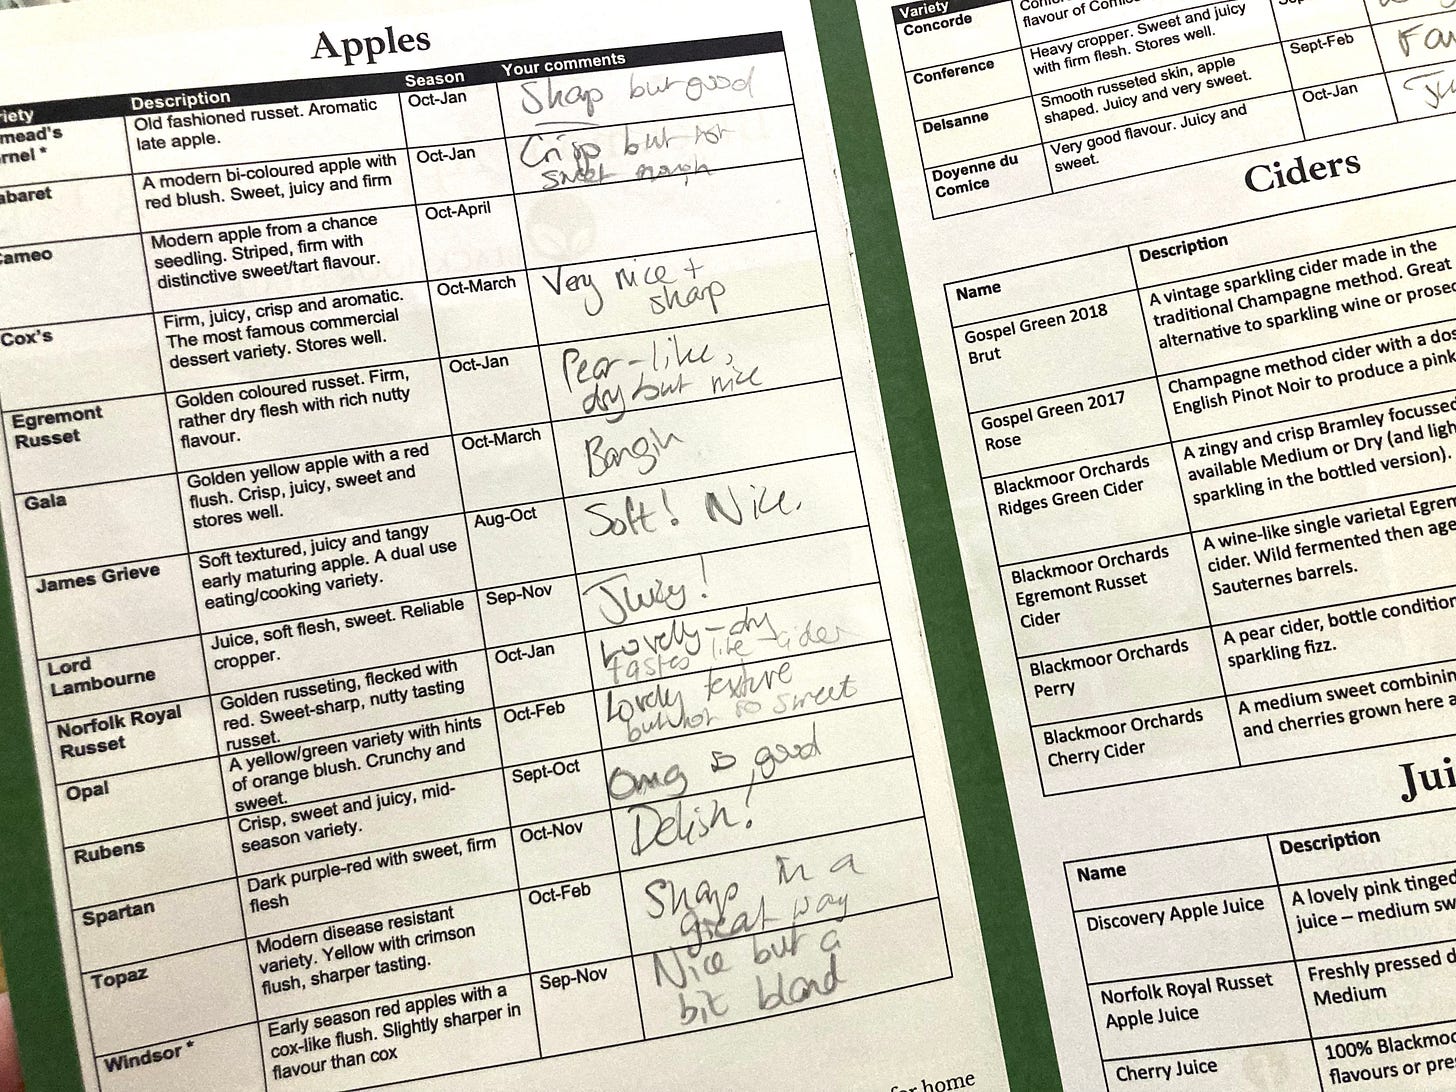 Apples
iety Description Season Your comments
mead's Old fashioned russet. Aromatic Oct-Jan Sharp but good
rnel * late apple.
abaret A modern bi-coloured apple with Oct-Jan Crisp but not
red blush. Sweet, juicy and firm sweet enough
ameo Modern apple from a chance Oct-April
seedling. Striped, firm with
distinctive sweet/tart flavour.
Cox's Firm, juicy, crisp and aromatic. Oct-March Very nice +
The most famous commercial sharp
dessert variety. Stores well.
Egremont Golden coloured russet. Firm, Oct-Jan Pear-like,
Russet rather dry flesh with rich nutty dry but nice
flavour.
Gala Golden yellow apple with a red Oct-March
flush. Crisp, juicy, sweet and
stores well.
James Grieve Soft textured, juicy and tangy Aug-Oct Soft! Nice.
early maturing apple. A dual use
eating/cooking variety.
Lord Juice, soft flesh, sweet. Reliable Sep-Nov Juicy!
Lambourne cropper.
Norfolk Royal Golden russeting, flecked with Oct-Jan Lovely-dry
Russet red. Sweet-sharp, nutty tasting tastes like cider
russet.
Opal A yellow/green variety with hints Oct-Feb Lovely texture
of orange blush. Crunchy and but not so sweet
sweet.
Rubens Crisp, sweet and juicy, mid- Sept-Oct Omg so good
season variety.
Spartan Dark purple-red with sweet, firm Oct-Nov Delish!
flesh
Topaz Modern disease resistant Oct-Feb Sharp in a
variety. Yellow with crimson great way
flush, sharper tasting.
Windsor * Early season red apples with a Sep-Nov Nice but a
cox-like flush. Slightly sharper in bit bland
flavour than cox
for home
Variety
Concorde
flavour of Comice
Conference Heavy cropper. Sweet and juicy
with firm flesh. Stores well.
Delsanne Smooth russeted skin, apple Sept-Feb
shaped. Juicy and very sweet.
Doyenne du Very good flavour. Juicy and Oct-Jan
Comice sweet.
Ciders
Name Description
Gospel Green 2018 A vintage sparkling cider made in the
Brut traditional Champagne method. Great
alternative to sparkling wine or prosec
Gospel Green 2017 Champagne method cider with a dos
Rose English Pinot Noir to produce a pink
Blackmoor Orchards A zingy and crisp Bramley focussed
Ridges Green Cider available Medium or Dry (and ligh
sparkling in the bottled version).
Blackmoor Orchards A wine-like single varietal Egrem
Egremont Russet cider. Wild fermented then age
Cider Sauternes barrels.
Blackmoor Orchards A pear cider, bottle condition
Perry sparkling fizz.
Blackmoor Orchards A medium sweet combinin
Cherry Cider and cherries grown here a
Jui
Name Description
Discovery Apple Juice A lovely pink tinged
juice – medium sw
Norfolk Royal Russet Freshly pressed d
Apple Juice Medium
Cherry Juice 100% Blackmoo
flavours or pre